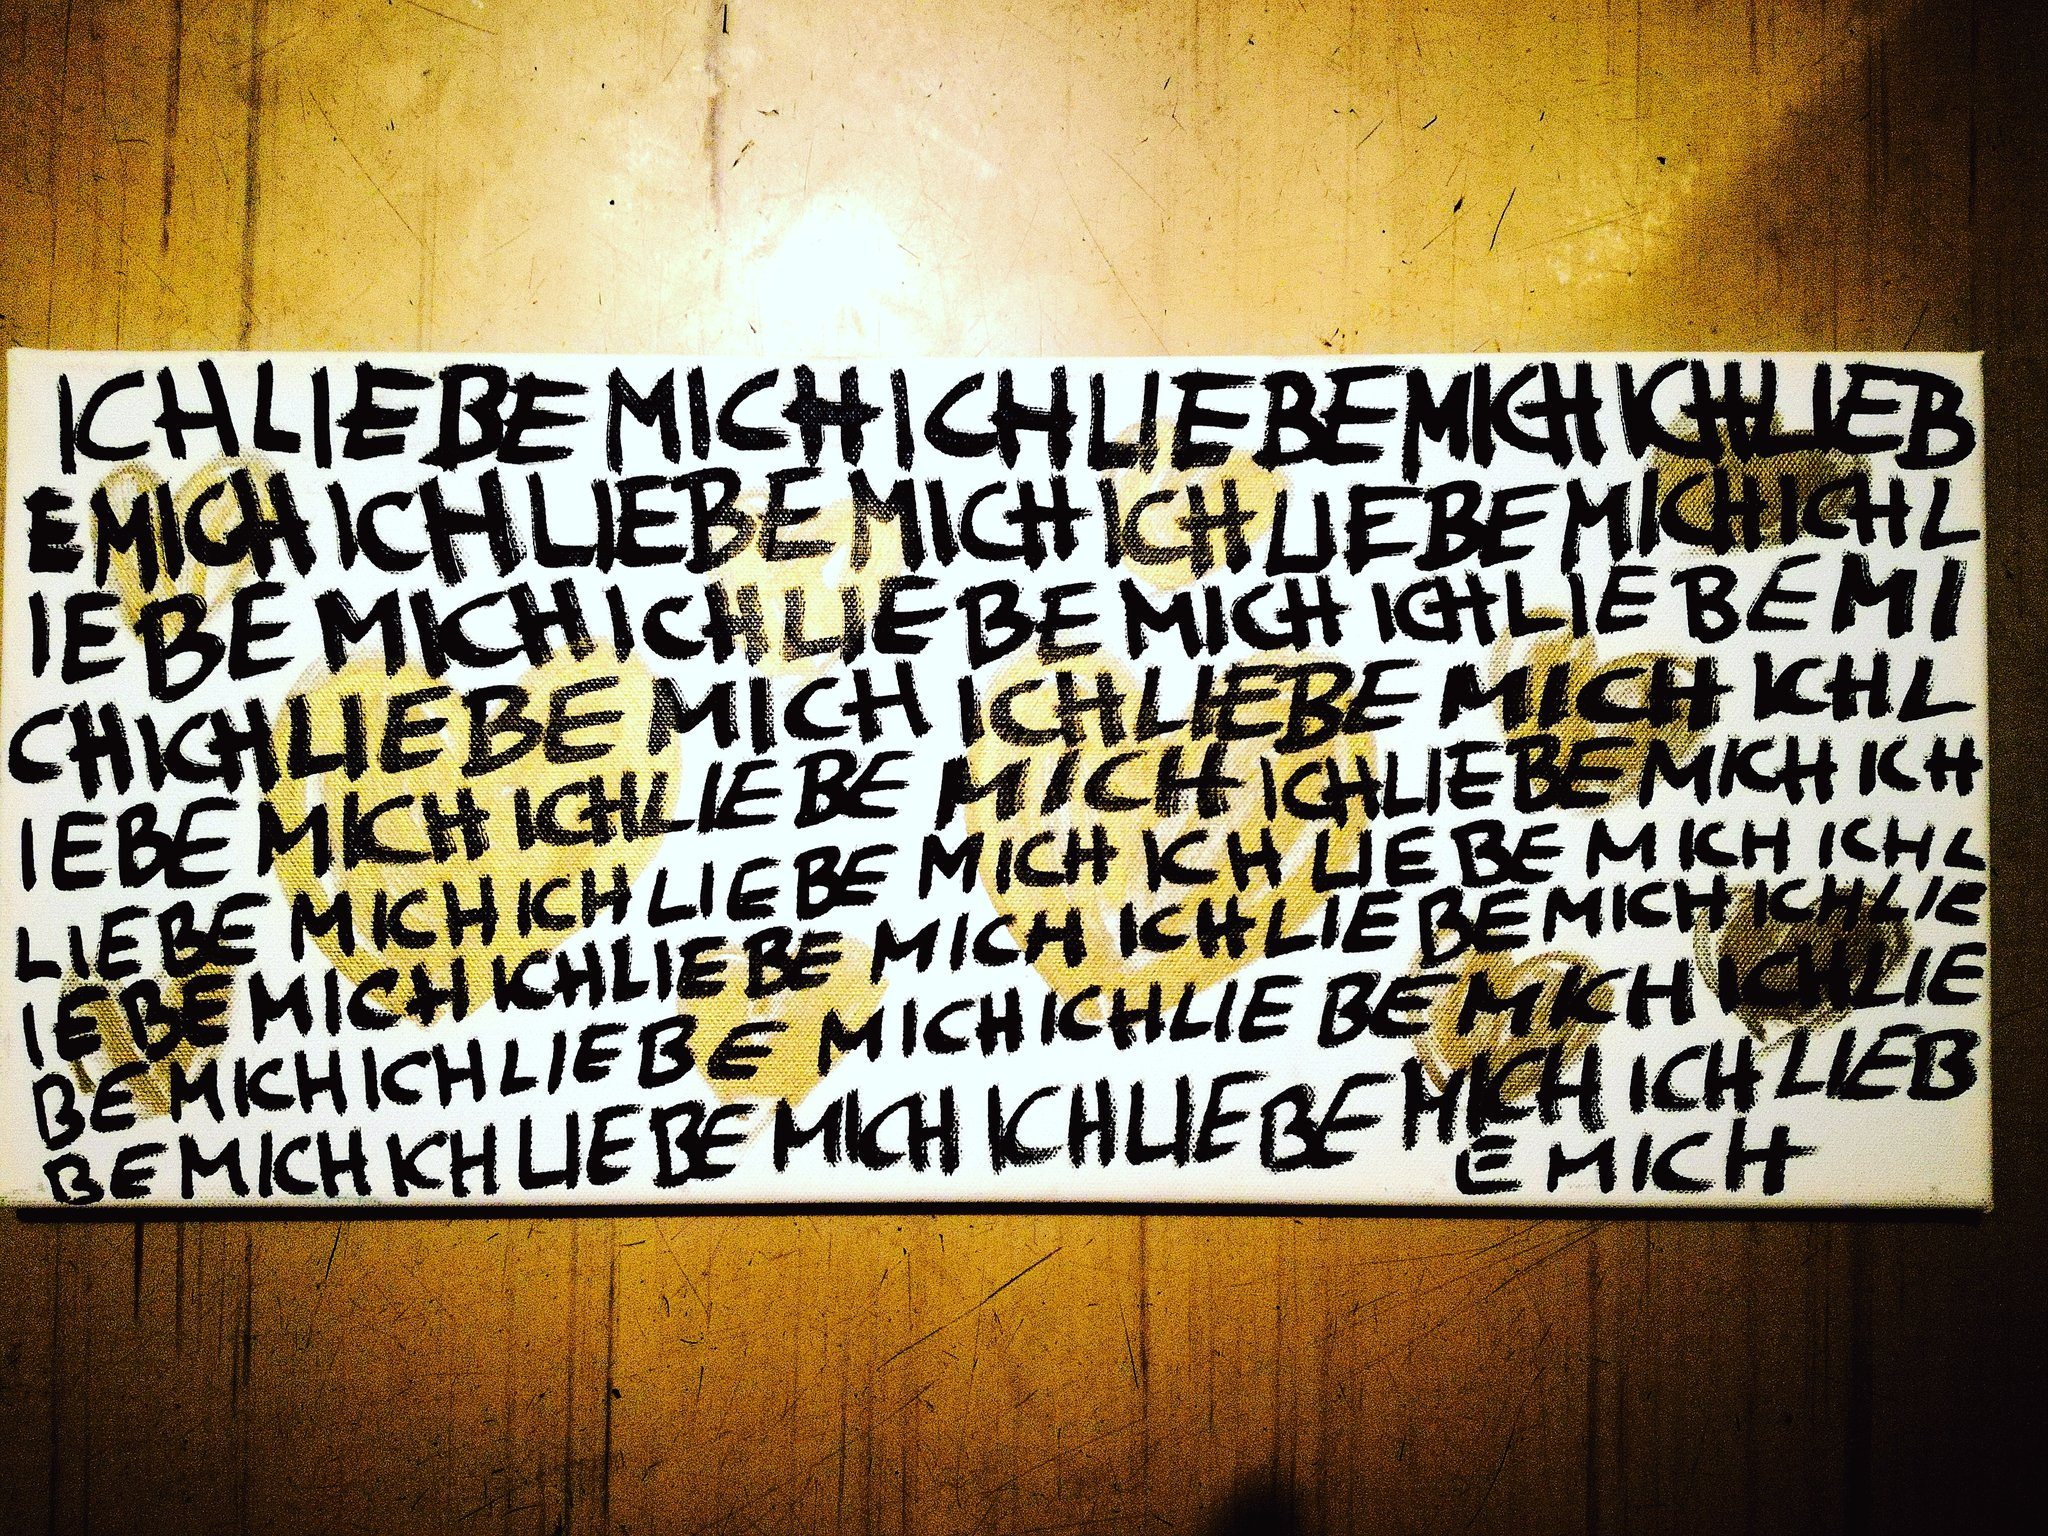 ICH LIEBE MICH ICH LIEBE MICH ICH LIEB
E MICH ICH LIEBE MICH ICH LIEBE MICH ICH L
IEBE MICH ICH LIEBE MICH ICH LIEBE MI
CH ICH LIEBE MICH ICH LIEBE MICH ICH L
IEBE MICH ICH LIEBE MICH ICH LIEBE MICH ICH
LIEBE MICH ICH LIEBE MICH ICH LIEBE MICH ICH L
IEBE MICH ICH LIEBE MICH ICH LIEBE MICH ICH LIE
BE MICH ICH LIEBE MICH ICH LIEBE MICH ICH LIE
BE MICH ICH LIEBE MICH ICH LIEBE MICH ICH LIEB
E MICH